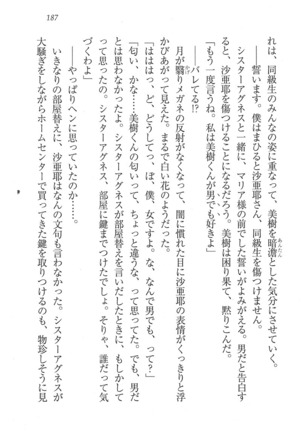 187
れは、同級生のみんなの姿に重なって、美樹を暗澹とした気分にさせていく。
――誓います。僕はまひると沙亜耶さん、同級生を傷つけません。
シスターアグネスと一緒に、マリア様の前でした誓いがよみがえる。男だと告白す
れば、沙亜耶を傷つけることになる。美樹は困り果て、黙りこんだ。
「もう一度言うね。私は美樹くんが男でも好きよ」
――バレてる!?
月が翳りメガネの反射がなくなって、闇に慣れた目に沙亜耶の表情がくっきりと浮
かびあがって見えた。まるで白い花のようだった。
「はははっ、ど、どうしてっ、ぼ、僕、女ですよ。な、なんで男でもって？」
「匂い、かな……美樹くんの匂いって、ちょっと違うな、って思ってた。でも、男だ
とは思わなかったよ。シスターアグネスが部屋替えを言いだしたときに、もしかして
って思ったの。シスターアグネス、部屋に鍵までつけたでしょ。そりゃ、誰だって気
づくわよ」
――やっぱりヘンに思っていたのか……。
いきなりの部屋替えに、沙亜耶はなんの文句も言わなかった。シスターアグネスが
大騒ぎをしながらホームセンターで買ってきた鍵を取りつけるのも、物珍しそうに見